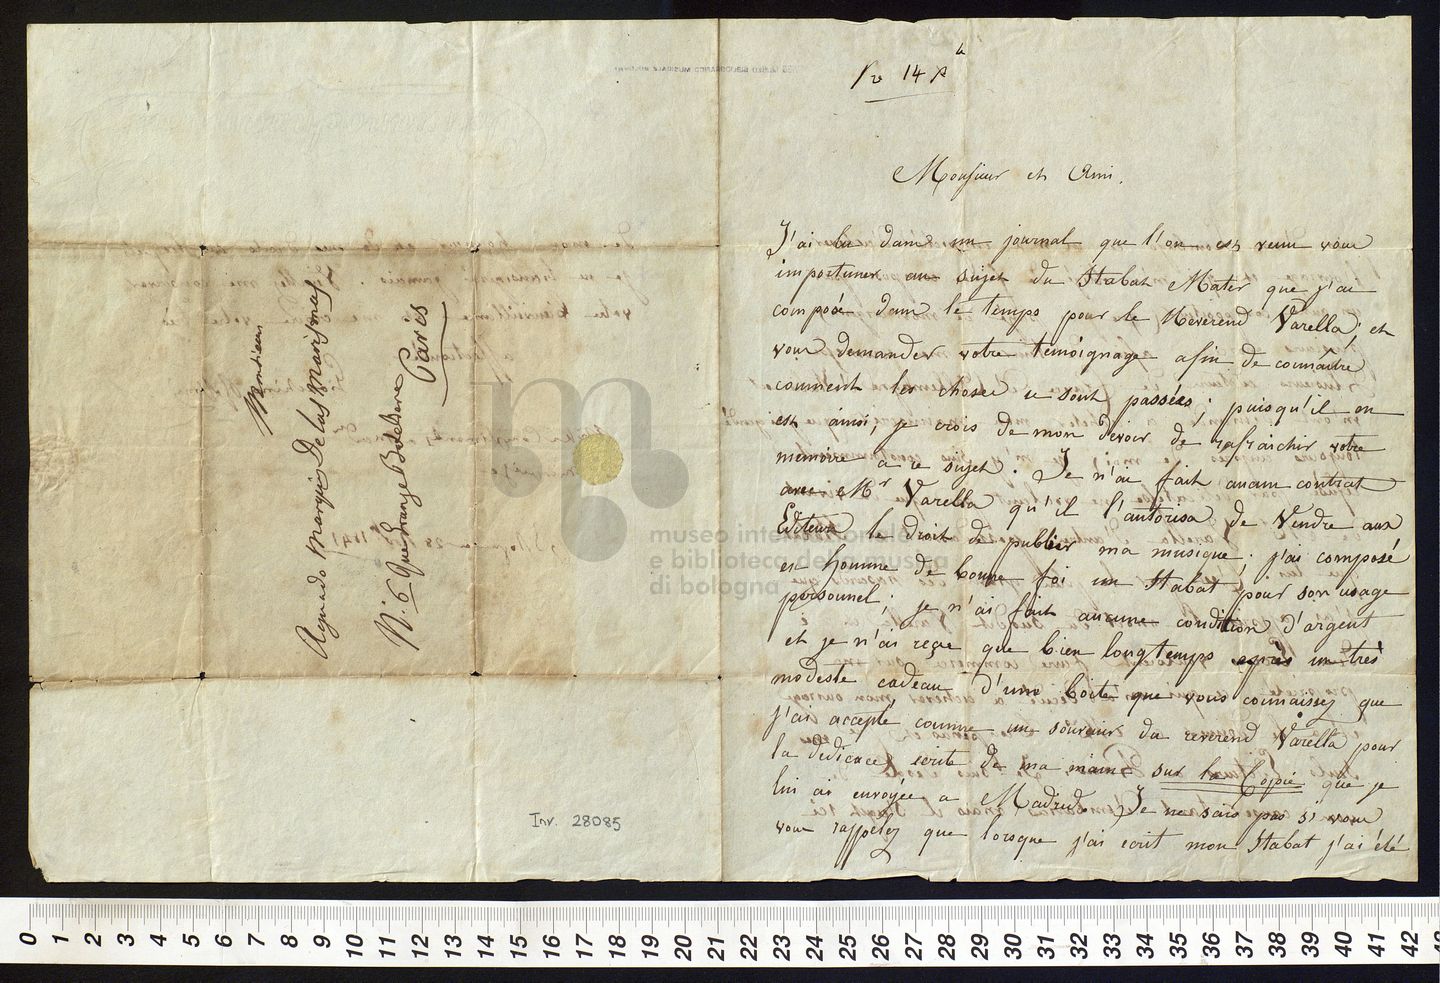 Monsieur
Aguado Marquis De las Marismas
N. 6 Grange Batelière
Paris
Inv. 28085
Pr 14
Monsieur et Ami.
J'ai lu dans un journal que l'on est venu vous
importuner au sujet du Stabat Mater que j'ai
composé dans le temps pour le Reverend Varella, et
vous demander votre temoignage afin de connaitre
comment les choses se sont passées; puisqu'il en
est ainsi, je crois de mon devoir de rafraichir votre
memoire a ce sujet. Je n'ai fait aucun contrat
avec Mr Varella qu'il l'autorisa de Vendre aux
Editeurs le droit de publier ma musique; j'ai composé
en homme de bonne foi un Stabat pour son usage
personnel; je n'ai fait aucune condition d'argent
et je n'ai reçu que bien longtemps après un très
modeste cadeau d'une boite que vous connaissez que
j'ai accepté comme un souvenir du reverend Varella pour
la dedicace ecrite de ma main sur la Copie que je
lui ai envoyée a Madrid. Je ne sais pas si vous
vous rappelez que lorsque j'ai ecrit mon Stabat j'ai été
museo internazionale
e biblioteca della musica
di bologna
0 1 2 3 4 5 6 7 8 9 10 11 12 13 14 15 16 17 18 19 20 21 22 23 24 25 26 27 28 29 30 31 32 33 34 35 36 37 38 39 40 41 42